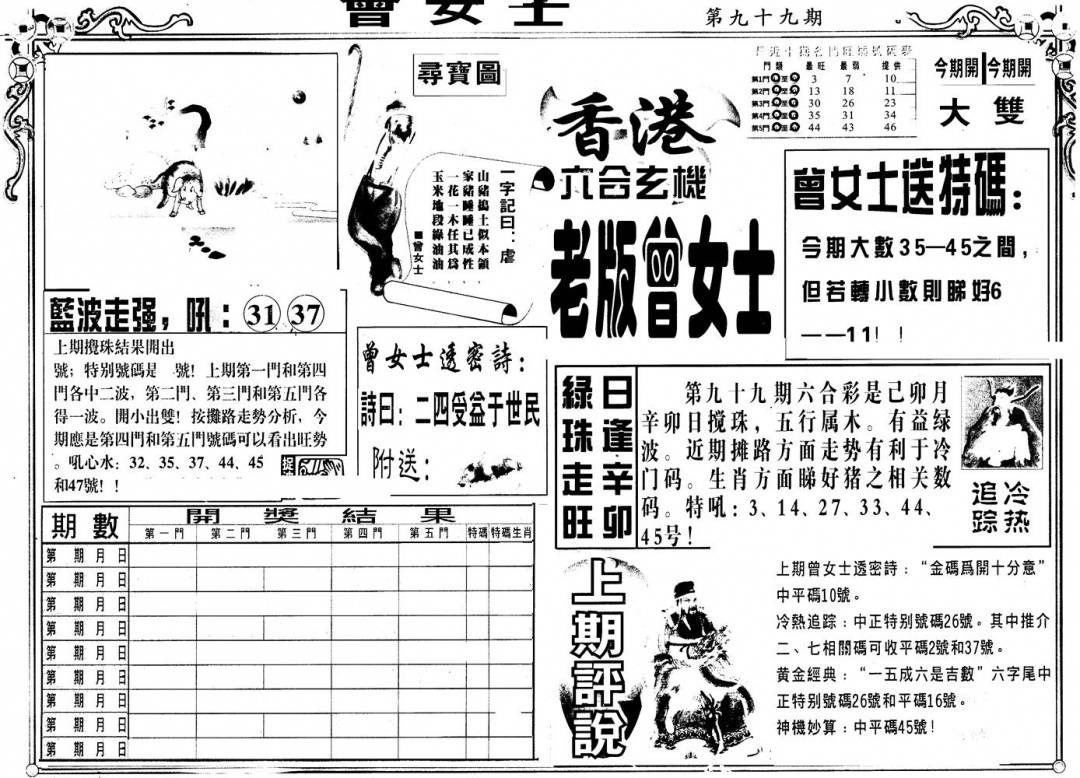 曾女士
第九十九期
尋寶圖
一字記曰：虐
山豬搗土似本領，
家豬睡睡已成性，
一花一木任其爲，
玉米地段綠油油。
■曾女士
香港
六合玄機
老版曾女士
門類 最旺 最弱 提供
第1門 至 3 7 10
第2門 至 13 18 11
第3門 至 30 26 23
第4門 至 35 31 34
第5門 至 44 43 46
今期開 今期開
大 雙
曾女士送特碼：
今期大數35—45之間，
但若轉小數則睇好6
——11！！
藍波走强，吼：31 37
上期攪珠結果開出
號；特別號碼是 號！上期第一門和第四
門各中二波，第二門、第三門和第五門各
得一波。開小出雙！按攤路走勢分析，今
期應是第四門和第五門號碼可以看出旺勢
。吼心水：32、35、37、44、45
和47號！！
曾女士透密詩：
詩曰：二四受益于世民
附送：
綠珠走旺
日逢辛卯
第九十九期六合彩是己卯月
辛卯日搅珠，五行属木。有益绿
波。近期摊路方面走势有利于冷
门码。生肖方面睇好猪之相关数
码。特吼：3、14、27、33、44、
45号！
冷热
追踪
期數 開獎結果
第一門 第二門 第三門 第四門 第五門 特碼 特碼生肖
第 期 月 日
第 期 月 日
第 期 月 日
第 期 月 日
第 期 月 日
第 期 月 日
第 期 月 日
第 期 月 日
第 期 月 日
上期評說
上期曾女士透密詩：“金碼爲開十分意”
中平碼10號。
冷熱追踪：中正特别號碼26號。其中推介
二、七相關碼可收平碼2號和37號。
黄金經典：“一五成六是吉數”六字尾中
正特别號碼26號和平碼16號。
神機妙算：中平碼45號！